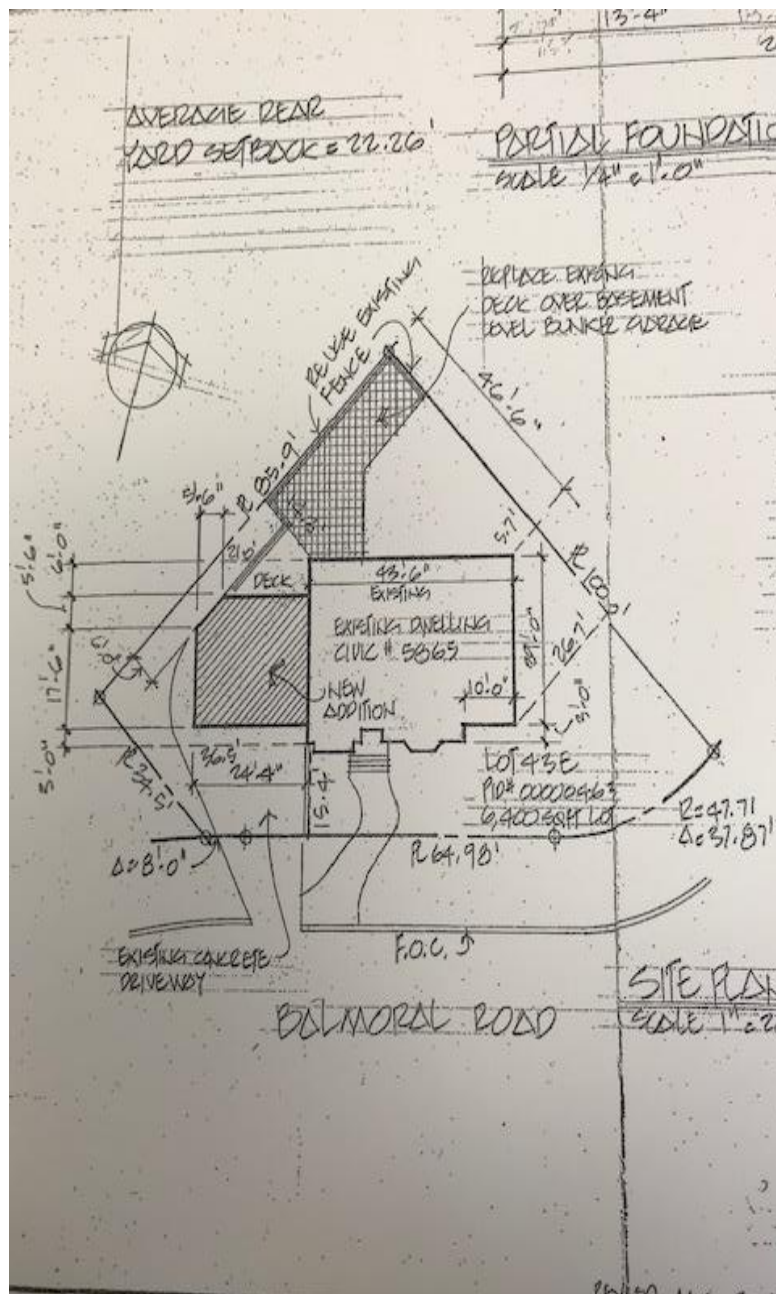 13'-4"
AVERAGE REAR
YARD SETBACK = 22.26'
PARTIAL FOUNDATIO
SCALE 1/4" = 1'-0"
REPLACE EXISING
DECK OVER BASEMENT
LEVEL BUNKER GARAGE
REUSE EXISTING
FENCE
46'-6"
PL 85.9'
5'-6"
5.7'
PL 100.0'
5'-6"
6'-0"
21.0'
DECK
43'-6"
EXISTING
EXISTING DWELLING
CIVIC # 5865
26.7'
17'-6"
NEW
ADDITION
10'-0"
3'-0"
3'-0"
PL 34.5'
36.5'
24'-4"
15.4'
LOT 43E
PID# 00000463
6,400 SQFT LOT
R=47.71
Δ=37.87'
Δ=8'-0"
PL 64.98'
F.O.C.
EXISTING CONCRETE
DRIVEWAY
BALMORAL ROAD
SITE PLAN
SCALE 1" = 2